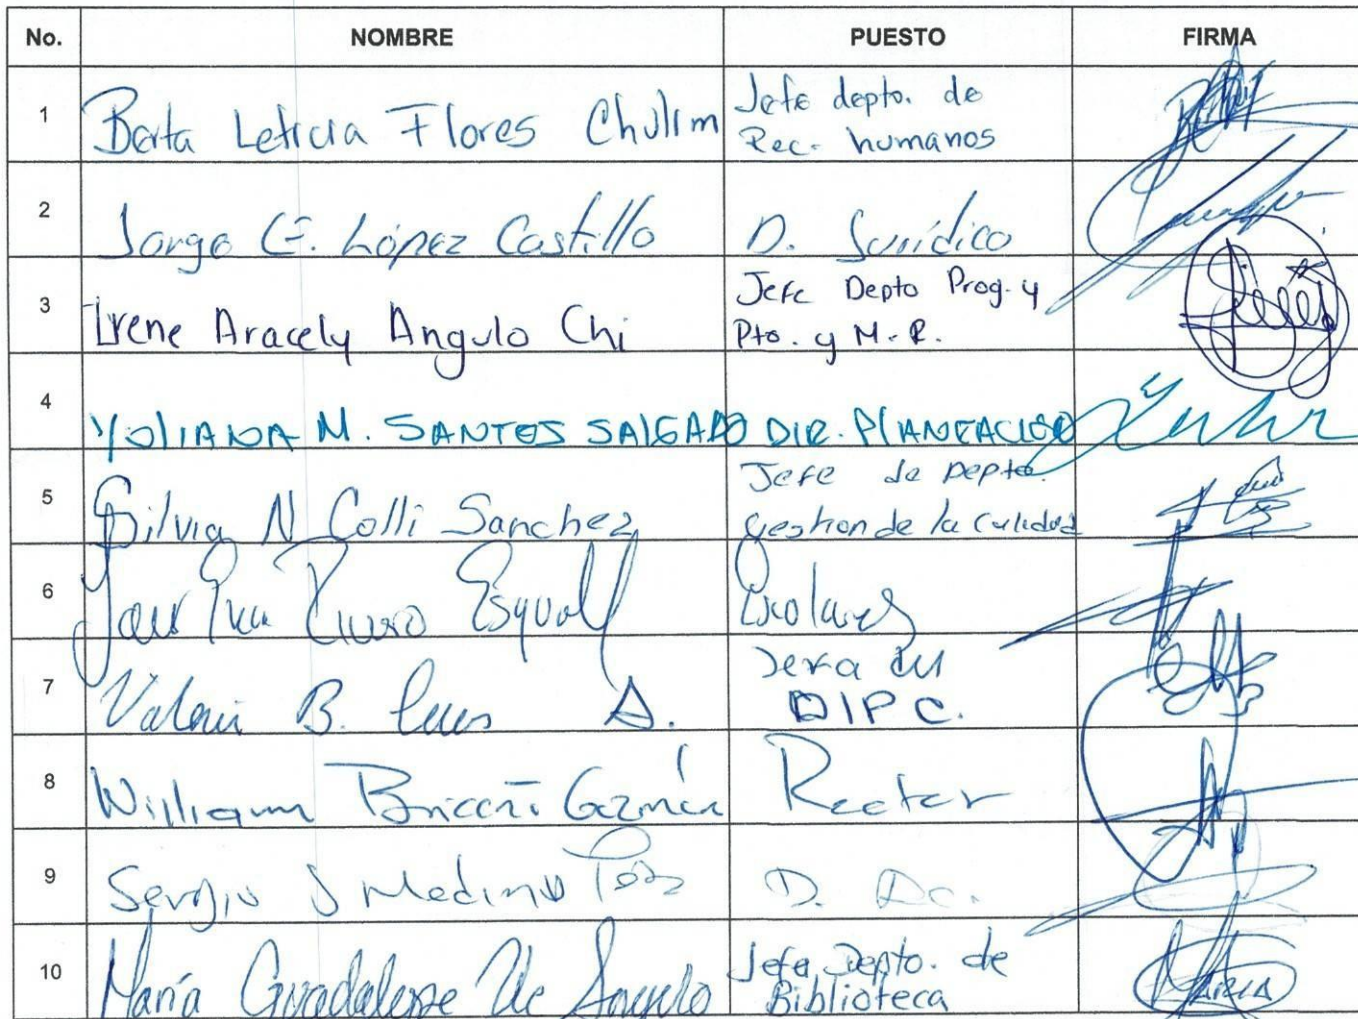 No. NOMBRE PUESTO FIRMA
1 Berta Leticia Flores Chulim Jefe depto. de
Rec. humanos
2 Jorge E. López Castillo D. Jurídico
3 Irene Aracely Angulo Chi Jefe Depto Prog. y
Pto. y M. R.
4 YOLIANDA M. SANTOS SALGADO DIR. PLANEACION
5 Silvia N Colli Sanchez Jefe de Depto.
Gestion de la Calidad
6 Escolares
7 B. A. Jefa del
DIPC.
8 William Rector
9 Sergio J Medina D.
10 María Guadalupe Uc Angulo Jefa Depto. de
Biblioteca